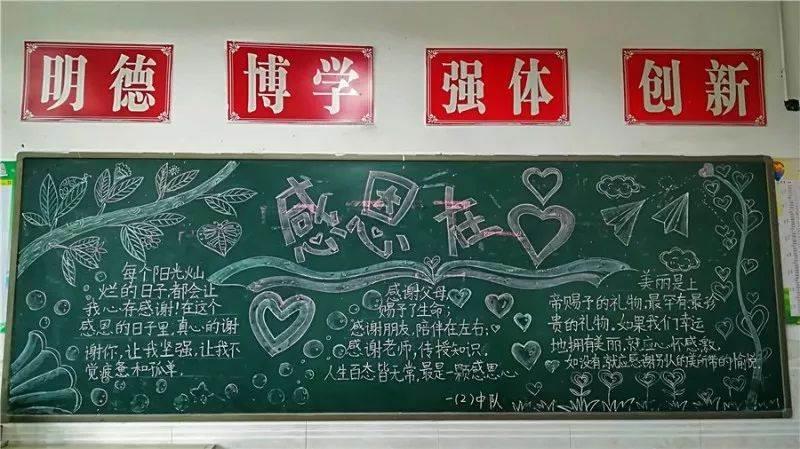 明德
博学
强体
创新
感恩在
每个阳光灿
烂的日子,都会让
我心存感谢!在这个
感恩的日子里,真心的谢
谢你,让我坚强,让我不
觉疲惫和孤单.
感谢父母,
赐予了生命;
感谢朋友,陪伴在左右;
感谢老师,传授知识.
人生百态皆无常,最是一颗感恩心
一(2)中队
美丽是上
帝赐予的礼物,最罕有最珍
贵的礼物.如果我们幸运
地拥有美丽,就应心怀感激,
如没有,就应感谢别人的美所带的愉悦.